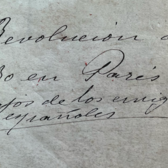 Revolución d
30 en París
ajos de los emig
españoles